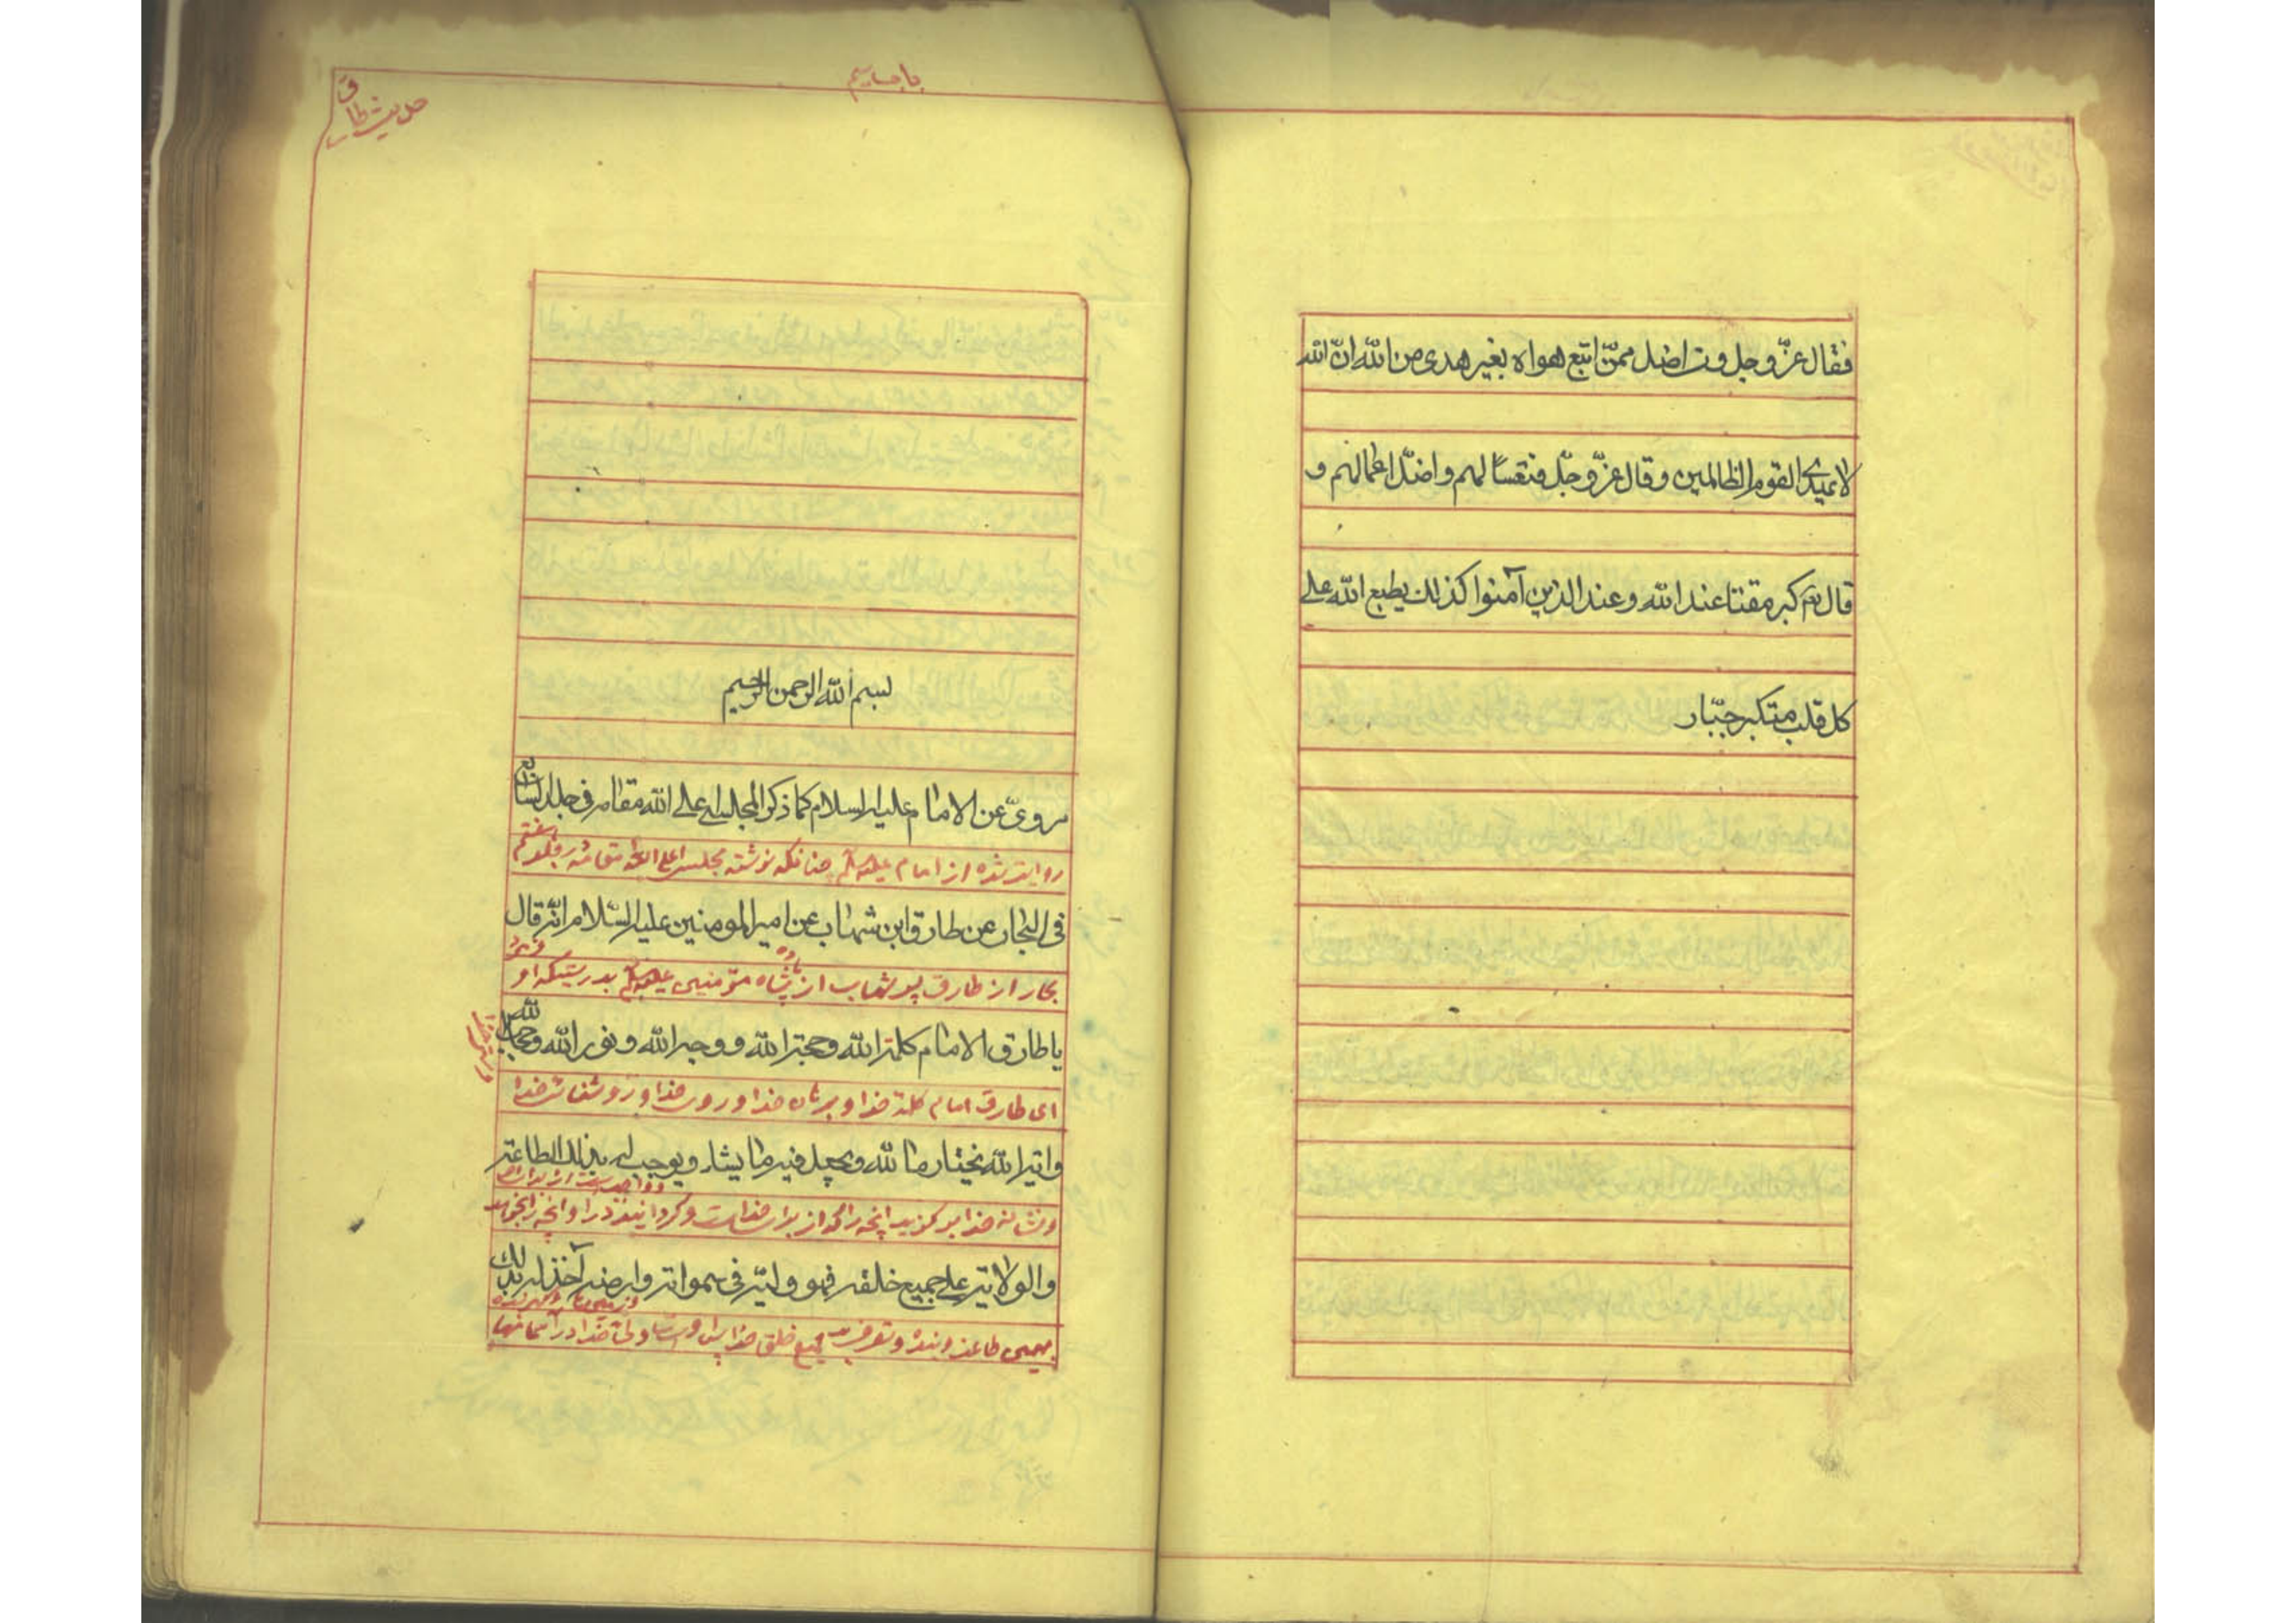 فقال عزّ و جل و من اضل ممّن اتبع هواه بغير هدى من الله انّ الله
لا يهدي القوم الظالمين و قال عزّ و جلّ فتعسًا لهم و اضلّ اعمالهم و
قال كبر مقتا عند الله و عند الذين آمنوا كذلك يطبع الله على
كل قلب متكبر جبّار
حديث طارق
بسم الله الرحمن الرحيم
مرويّ عن الامام عليه السلام كما ذكر المجلسى اعلى الله مقامه فى جلد السابع
روايت شده از امام چنانكه نوشته مجلسى اعلى الله مقامه در جلد هفتم
فى البحار عن طارق ابن شهاب عن امير المومنين عليه السّلام انّه قال
بحار از طارق پسر شهاب از پادشاه مؤمنين بدرستيكه او فرمود
يا طارق الامام كلمة الله و حجة الله و وجه الله و نور الله و حجاب الله
اى طارق امام كلمهٔ خدا و برهان خدا و روى خدا و روشنائى خدا
و اية الله يختاره الله و يجعل فيه ما يشاء و يوجب له بذلك الطاعة
و نشانه خدا بر گزيد آنچه را كه از براى خداست و گردانيد در او آنچه را بخواهد
و الولاية على جميع خلقه فهو وليّه فى سمواته و ارضه آخذ له بذلك
جميع خلق خدا ولى خدا در آسمانها